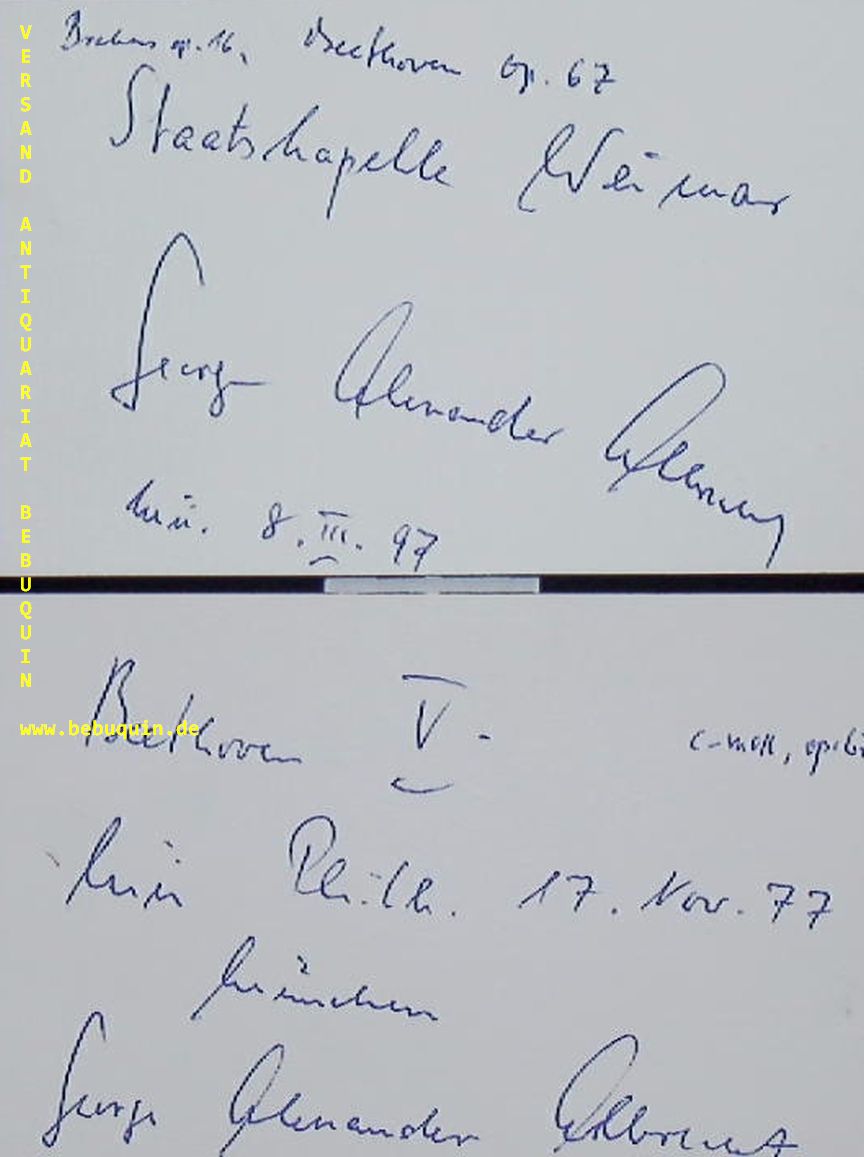 Brahms op. 16, Beethoven op. 67
Staatskapelle Weimar
George Alexander Albrecht
Mü. 8. III. 97
Beethoven V. c-moll, op. 67
Mün Philh. 17. Nov. 77
München
George Alexander Albrecht
VERSAND ANTIQUARIAT BEBUQUIN
www.bebuquin.de